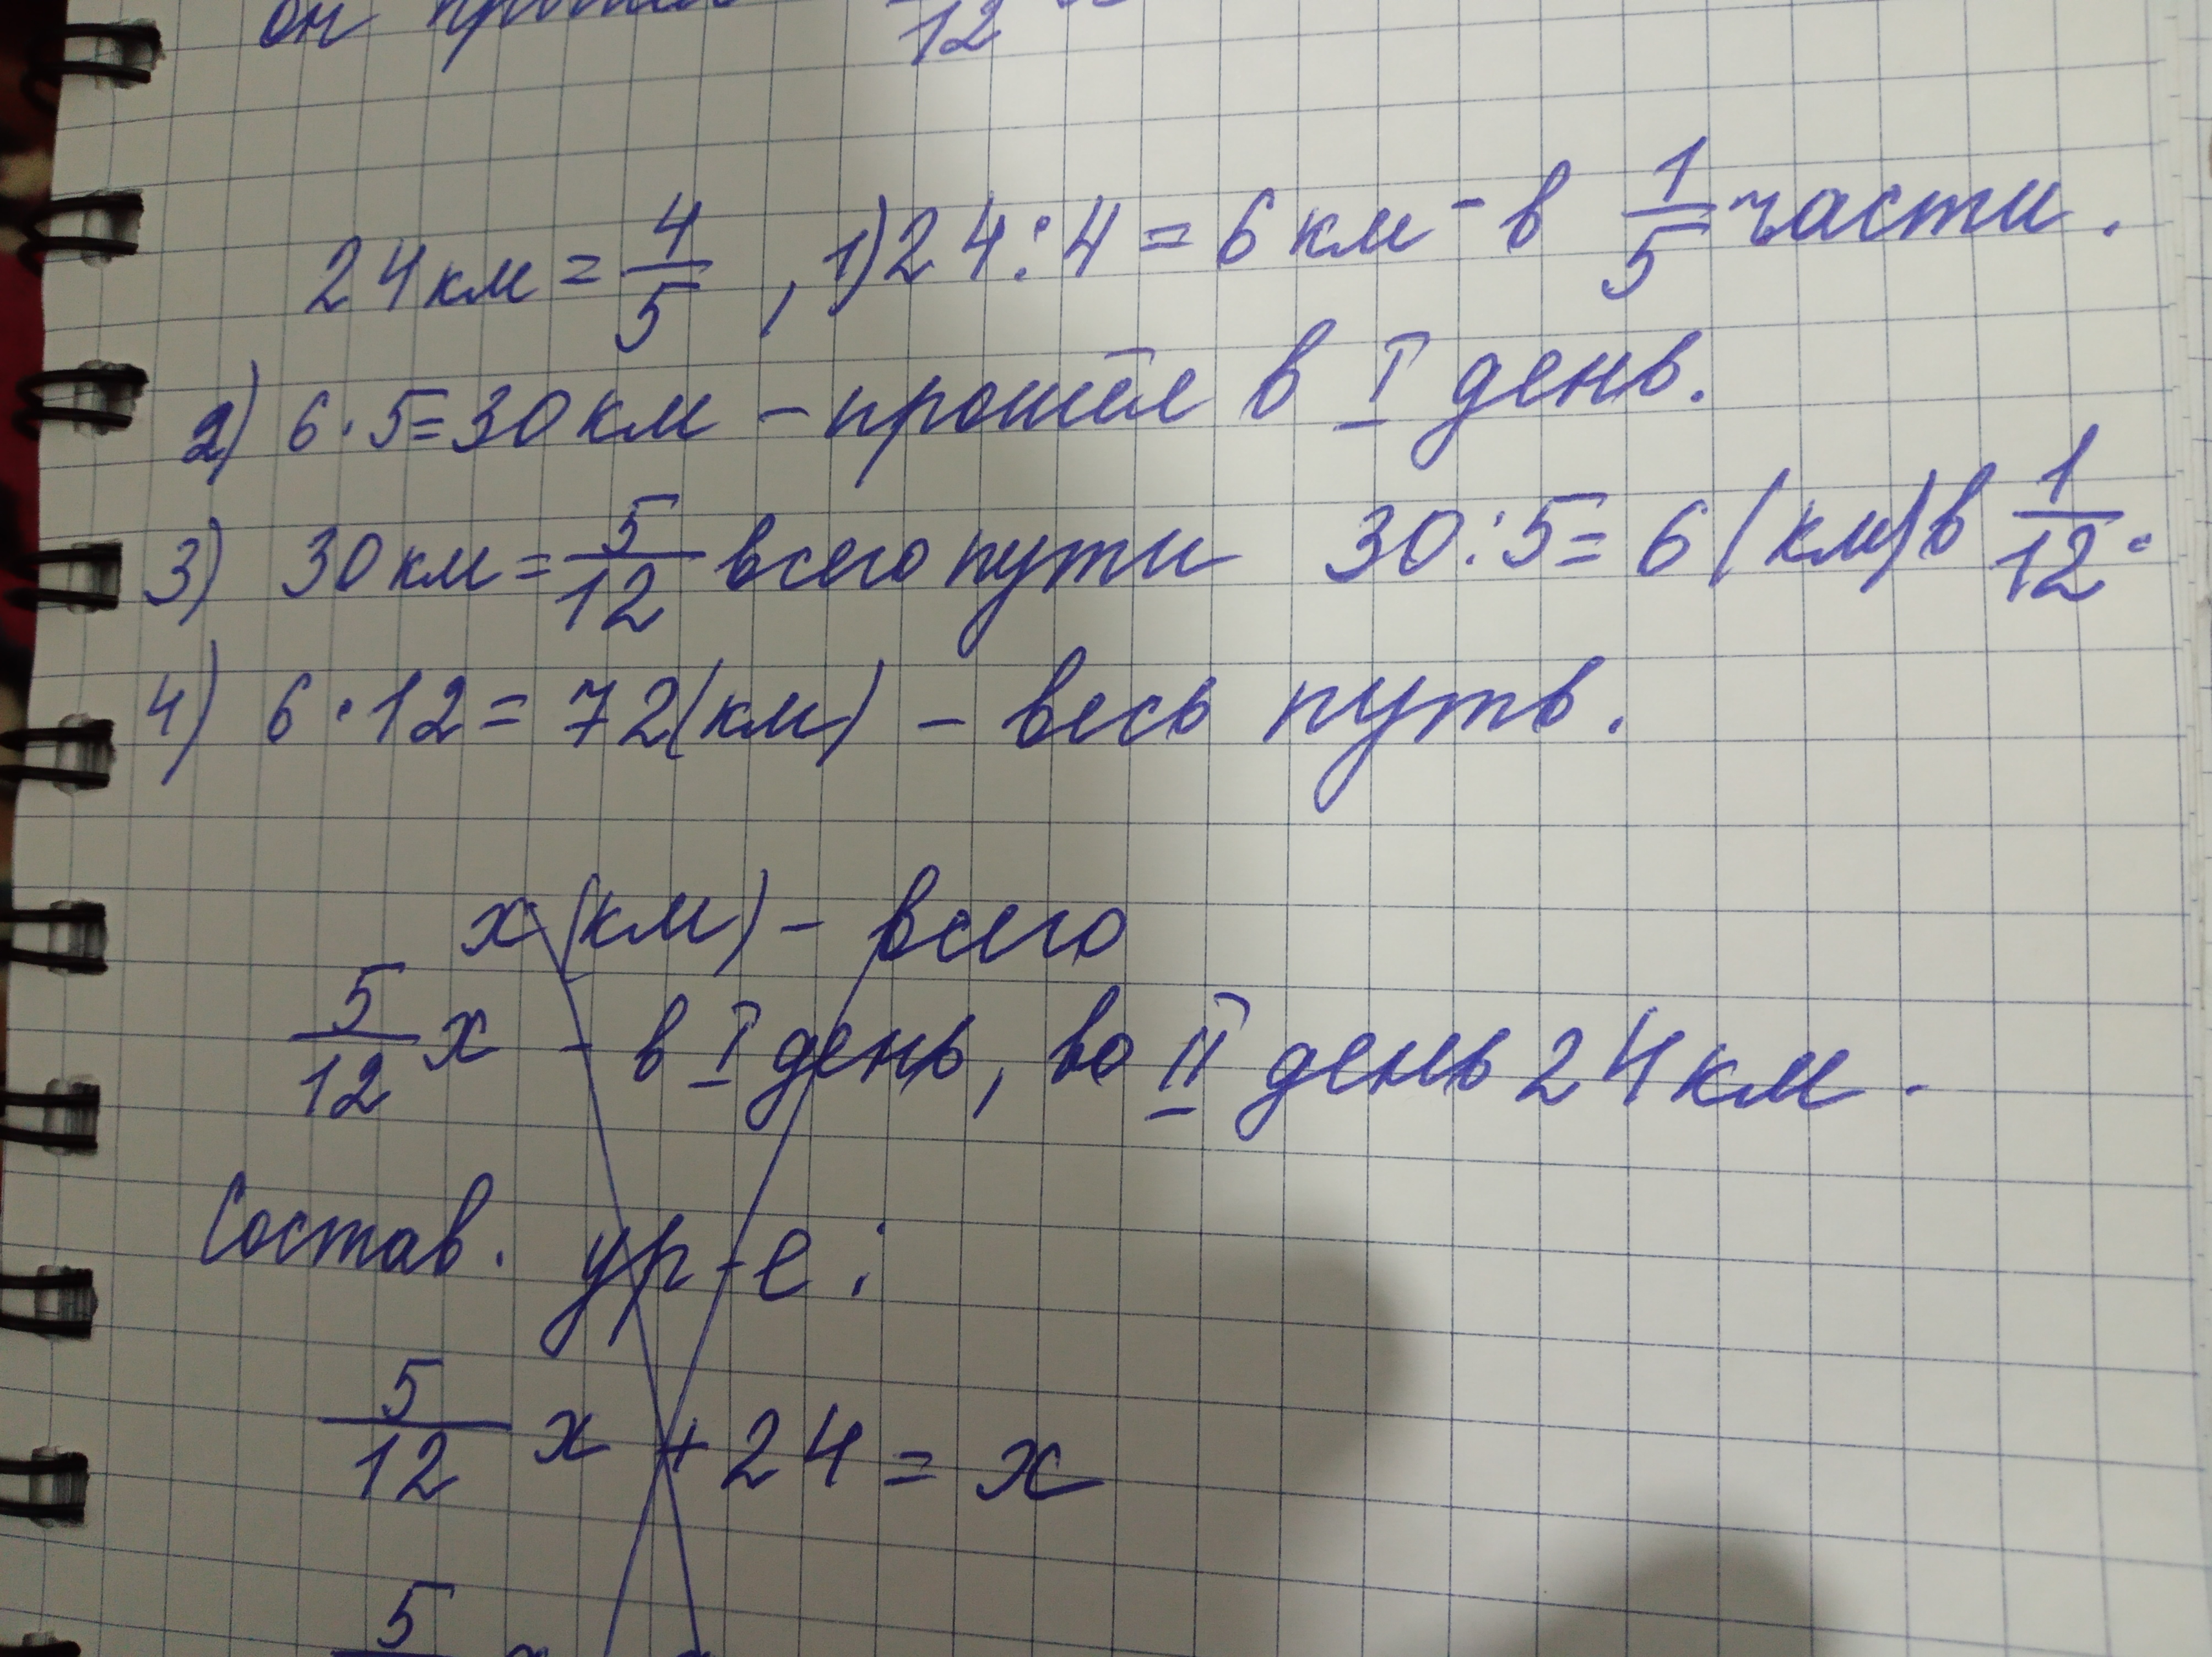 он 12
24 км = 4/5 , 1) 24 : 4 = 6 км - в 1/5 части .
2) 6 · 5 = 30 км - прошёл в I день.
3) 30 км = 5/12 всего пути 30 : 5 = 6 (км) в 1/12 .
4) 6 · 12 = 72 (км) - весь путь .
x (км) - всего
5/12 x - в I день, во II день 24 км .
Состав . ур-е :
5/12 x + 24 = x
5